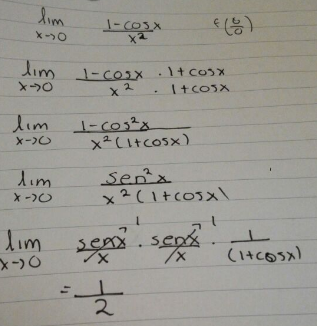 lim x→0 1-cosx / x² ε(0/0)
lim x→0 1-cosx / x² · 1+cosx / 1+cosx
lim x→0 1-cos²x / x²(1+cosx)
lim x→0 sen²x / x²(1+cosx)
lim x→0 senx / x →1 · senx / x →1 · 1 / (1+cosx)
= 1 / 2